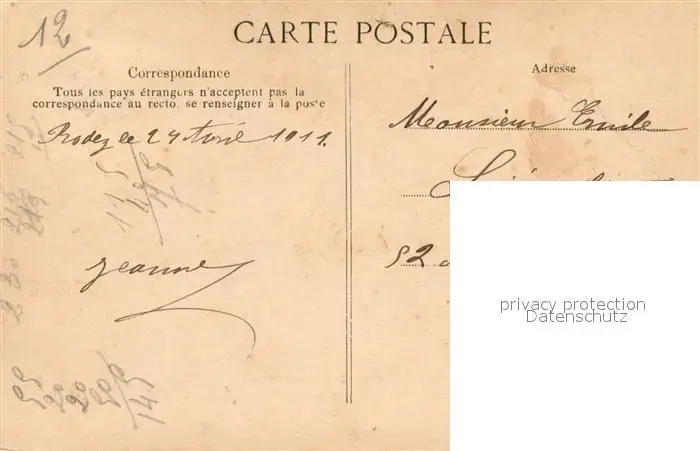 12
CARTE POSTALE
Correspondance
Tous les pays étrangers n'acceptent pas la
correspondance au recto, se renseigner à la poste
Rodez le 24 Avril 1911.
Jeanne
Adresse
Monsieur Emile
52
privacy protection
Datenschutz